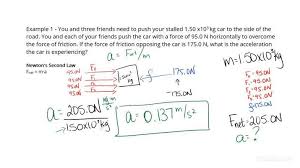 Example 1 - You and three friends need to push your stalled 1.50 x10³ kg car to the side of the
road. You and each of your friends push the car with a force of 95.0 N horizontally to overcome
the force of friction. If the force of friction opposing the car is 175.0 N, what is the acceleration
the car is experiencing?
Newton's Second Law
Fnet = ma
a = Fnet/m
95.0N F₁
95.0N F₂
95.0N F₃
95.0N F₄
175.0N
m = 1.50x10³kg
F₁ = 95.0N
F₂ = 95.0N
F₃ = 95.0N
F₄ = 95.0N
Fnet = 205.0N
a = ?
a = 205.0N
1.50x10³kg
a = 0.137 m/s²